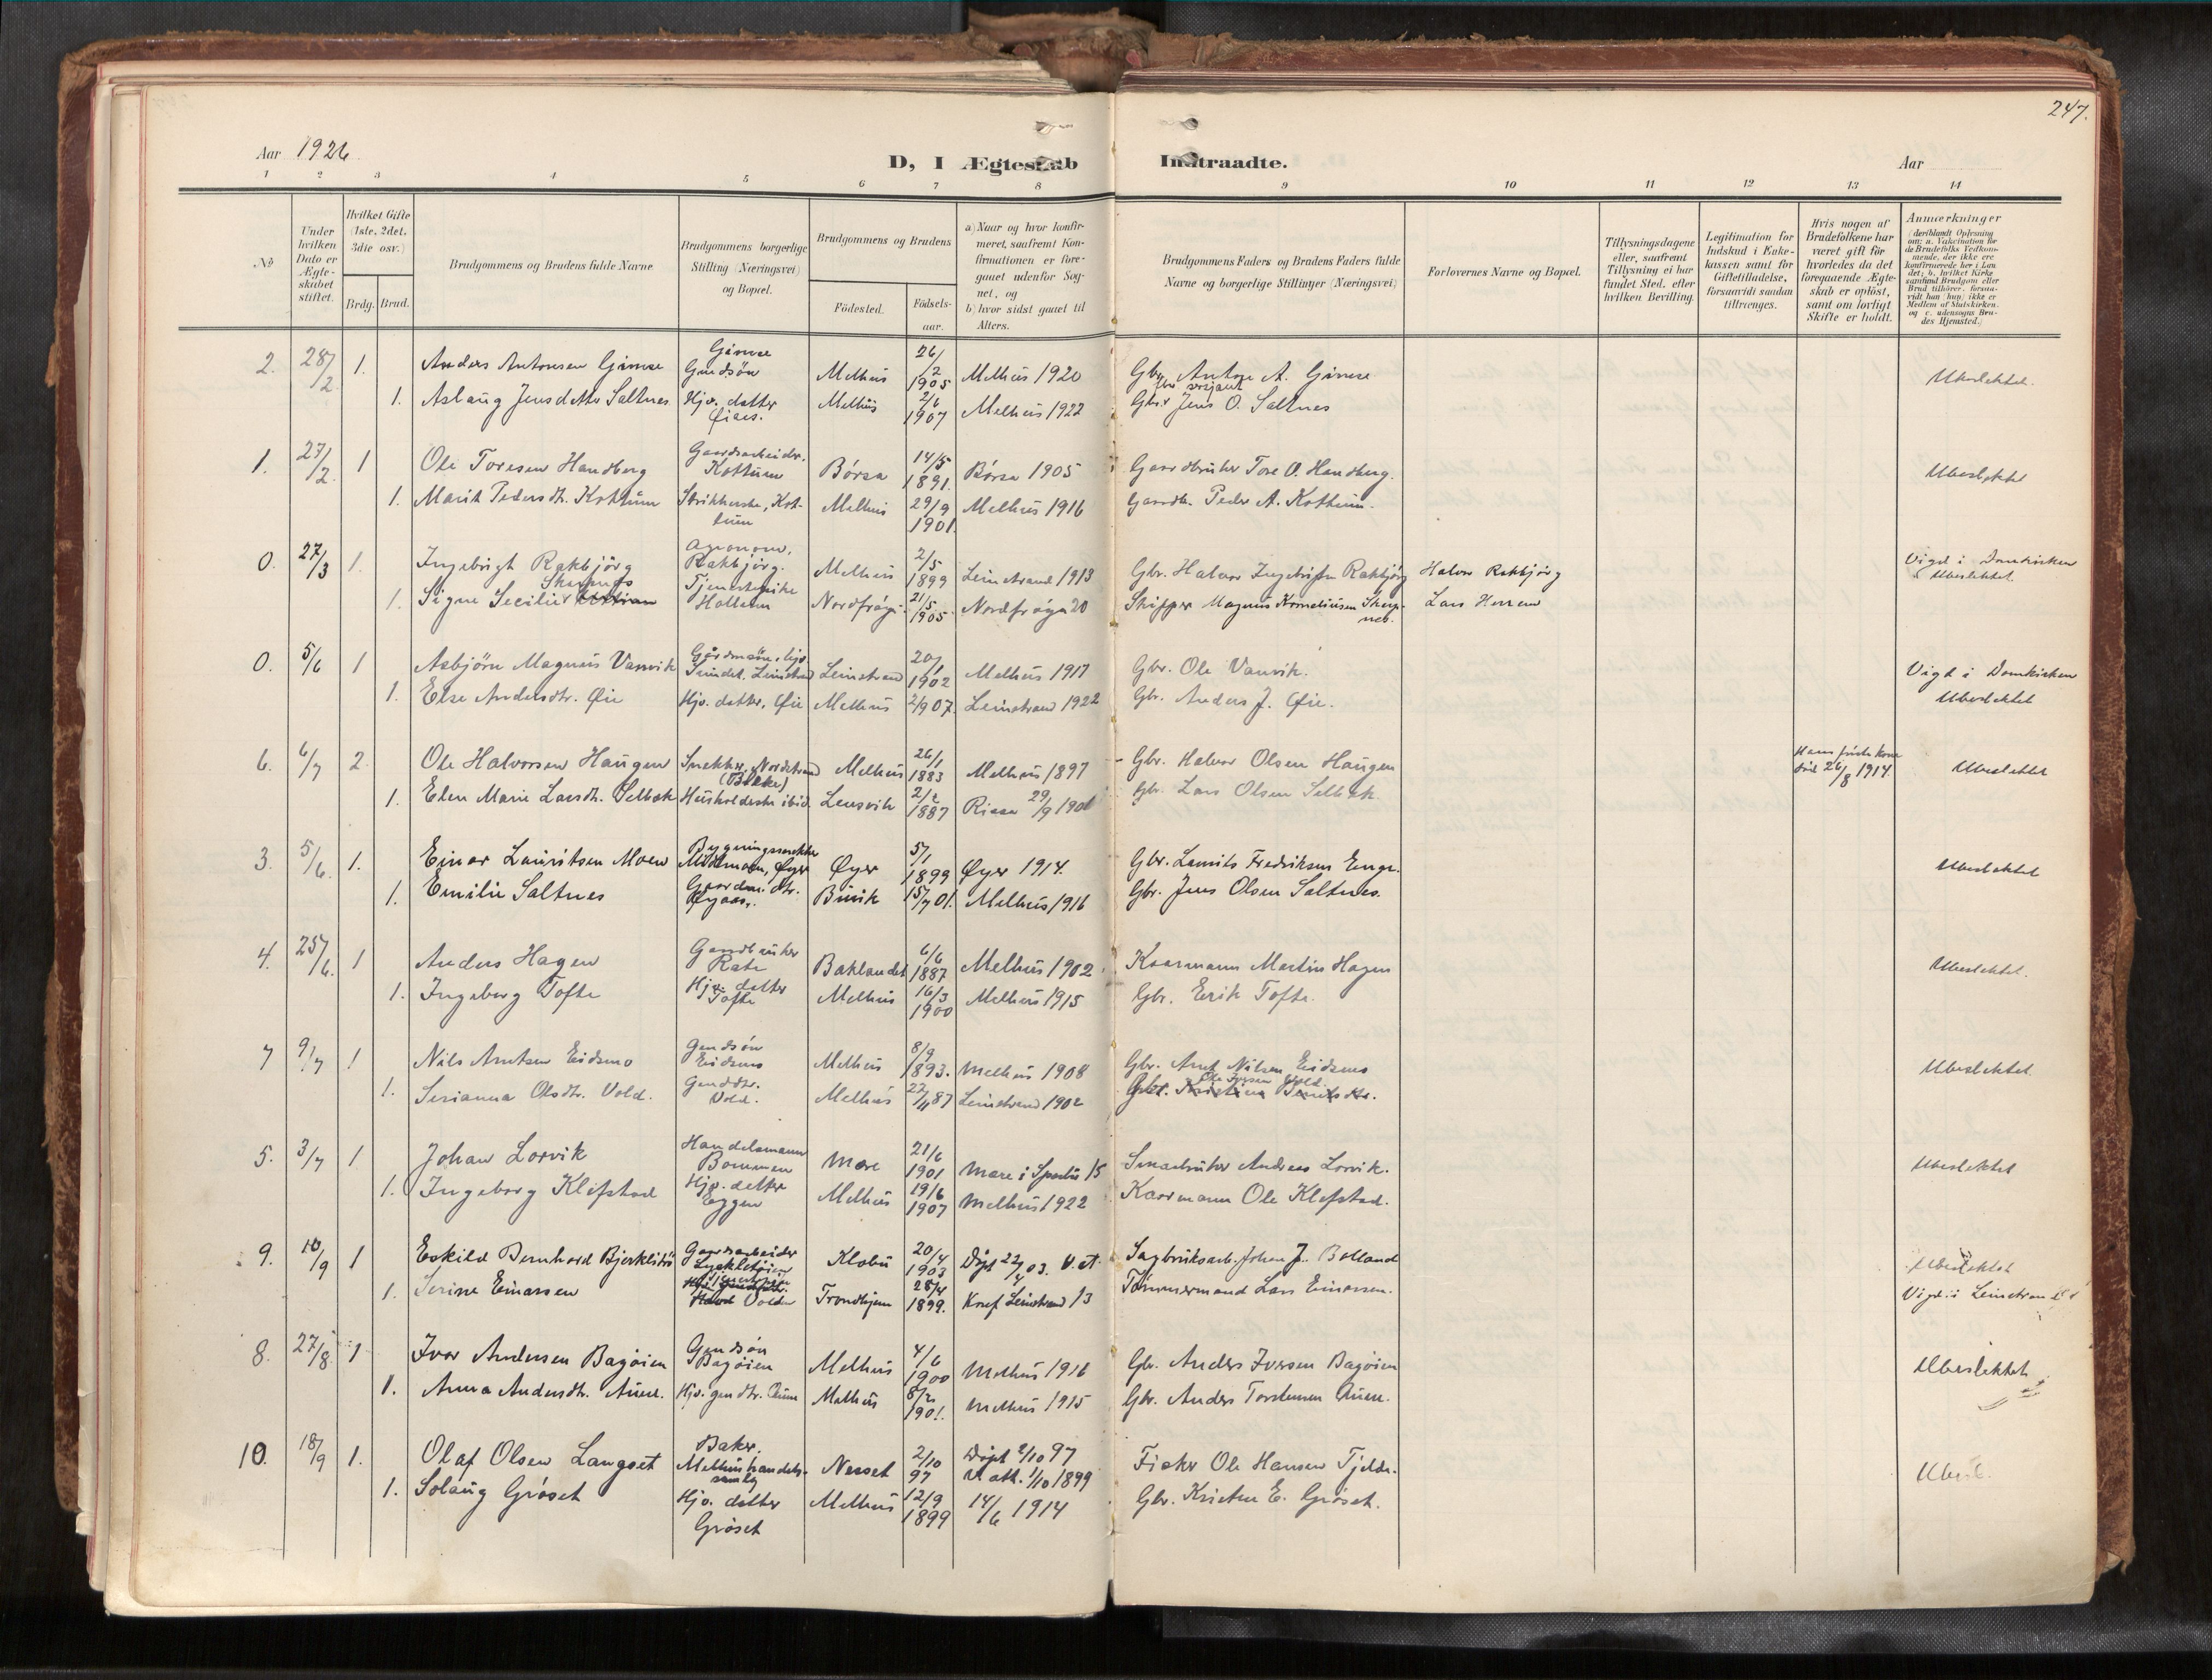 247.
Aar 1926
D, I Ægteskab Indtraadte.
Aar
1 2 3 4 5 6 7 8 9 10 11 12 13 14
№
Under hvilken Dato er Ægte-skabet stiftet.
Hvilket Gifte (1ste, 2det, 3die osv.)
Brdg. Brud.
Brudgommens og Brudens fulde Navne
Brudgommens borgerlige Stilling (Næringsvei) og Bopæl.
Brudgommens og Brudens
Födested.
Födsels-aar.
a) Naar og hvor konfir-meret, saafremt Kon-firmationen er fore-gaaet udenfor Sog-net, og
b) hvor sidst gaaet til Alters.
Brudgommens Faders og Brudens Faders fulde Navne og borgerlige Stillinger (Næringsvei)
Forlovernes Navne og Bopæl.
Tillysningsdagene eller, saafremt Tillysning ei har fundet Sted, efter hvilken Bevilling.
Legitimation for Indskud i Enke-kassen samt for Giftetilladelse, forsaavidt saadan tiltrænges.
Hvis nogen af Brudefolkene har været gift för hvorledes da det foregaaende Ægte-skab er oplöst, samt om lovligt Skifte er holdt.
Anmærkninger (deriblandt Oplysning om: a. Vakcination for de Brudefolks Vedkom-mende, der ikke ere konfirmerede her i Lan-det; b. hvilket Kirke-samfund Brudgom eller Brud tilhörer, forsaa-vidt han (hun) ikke er Medlem af Statskirken. og c. udensogns Bru-des Hjemsted.)
2. 28/2 1. Anders Antonsen Gimse Gimse Gmdsøn Melhus 26/2 1905 Melhus 1920 Gbr. Anton A. Gimse Ubeslektet.
1. Aslaug Jensdatter Saltnes Hjv. datter Øiaas. Melhus 2/6 1907 Melhus 1922 Gbr. Jens O. Saltnes
1. 27/2 1 Ole Toresen Handberg Gaardsarbeider. Kottum Börsa 14/5 1891. Börsa 1905 Gaardbruker Tore O. Handberg. Ubeslektet
1. Marit Pedersdtr. Kottum Strikkerske, Kot-tum Melhus 29/9 1901. Melhus 1916 Gaardb. Peder A. Kottum.
0. 27/3 1. Ingebrigt Rakbjörg Agronom, Rakbjörg. Melhus 2/5 1899 Leinstrand 1913 Gbr. Halvor Ingebrigtsen Rakbjörg Halvor Rakbjörg Vigd i Domkirken Ubeslektet.
1. Signe Secilie Skarpnes Tjenestepike Hollum Nordfröya 21/5 1905 Nordfröya 20 Skipper Magnus Korneliusen Skarp-nes. Lars Horrem
0. 5/6 1 Asbjörn Magnus Vanvik Leinstrand 20/1 1902 Melhus 1917 Gbr. Ole Vanvik. Vigd i Domkirken
1. Else Andersdtr. Øie Hjv. datter, Øie Melhus 2/9 07. Leinstrand 1922 Gbr. Anders J. Øie. Ubeslektet
6. 6/7 2. Ole Halvorsen Haugen Snekker, Nordstrand (Bakke) Melhus 26/1 1883 Melhus 1897 Gbr. Halvor Olsen Haugen Hans første kone död 26/8 1914. Ubeslektet
1. Elen Marie Larsdtr. Selbæk Husholderske ibid. Lensvik 2/2 1887 Rissa 29/9 1901 Gbr. Lars Olsen Selbæk.
3. 5/6. 1. Einar Lauritsen Moen Bygningssnekker Moen, Øyer Øyer 5/1 1899 Øyer 1914. Gbr. Laurits Fredriksen Enge. Ubeslektet
1. Emilie Saltnes Gaardm. dtr. Øyaas. Buvik 15/7 01. Melhus 1916 Gbr. Jens Olsen Saltnes.
4. 25/6. 1 Anders Hagen Gaardbruker Rate Baklandet 6/6 1887 Melhus 1902 Kaarmann Martin Hagen Ubeslektet.
1. Ingeborg Tofte Hjv. datter Tofte Melhus 16/3 1900 Melhus 1915 Gbr. Eerik Tofte.
7 9/7 1 Nils Arntsen Eidsmo Gmdsön Eidsmo Melhus 8/9 1893. Melhus 1908 Gbr. Arnt Nilsen Eidsmo Ubeslektet.
1. Serianna Olsdtr. Vold. Gmddtr. Vold. Melhus 22/11 87 Leinstrand 1902 Gbr. Ole Vold.
5. 3/7 1 Johan Lorvik Handelsmann Bommen Mære 21/6 1901 Mære i Sparbu 15 Smaabruker Andreas Lorvik. Ubeslektet
1. Ingeborg Klefstad Hjv. datter Eggen Melhus 19/6 1907 Melhus 1922 Kaarmann Ole Klefstad.
9. 10/9 1 Eskild Bernhard Bjerklitrö Gaardsarbeider Klæbu 20/4 1903 Döpt 22/4 03. Sagbruksarb. Johan J. Bolland Ubeslektet
1. Serine Einarsen Volden Trondhjem 28/4 1899. Konf Leinstrand 13 Tömmermand Lars Einarsen. Vigd i Leinstrand
8. 27/8 1 Ivar Andersen Bagöien Gmdsön Bagöien Melhus 4/6 1900 Melhus 1916 Gbr. Anders Iversen Bagöien Ubeslektet
1. Anna Andersdtr. Aune. Hjv. gmdtr. Aune Melhus 8/2 1901. Melhus 1915 Gbr. Anders Torstensen Aune.
10. 18/9 1. Olaf Olsen Langset Baker. Melhus handels-samlag Nesset 2/10 97 Döpt 2/10 97 1/10 1899 Fisker Ole Hansen Tjelde. Ubesl.
1. Solaug Gröset Hjv. datter Gröset Melhus 12/9 1899 14/6 1914 Gbr. Kristen E. Gröset.